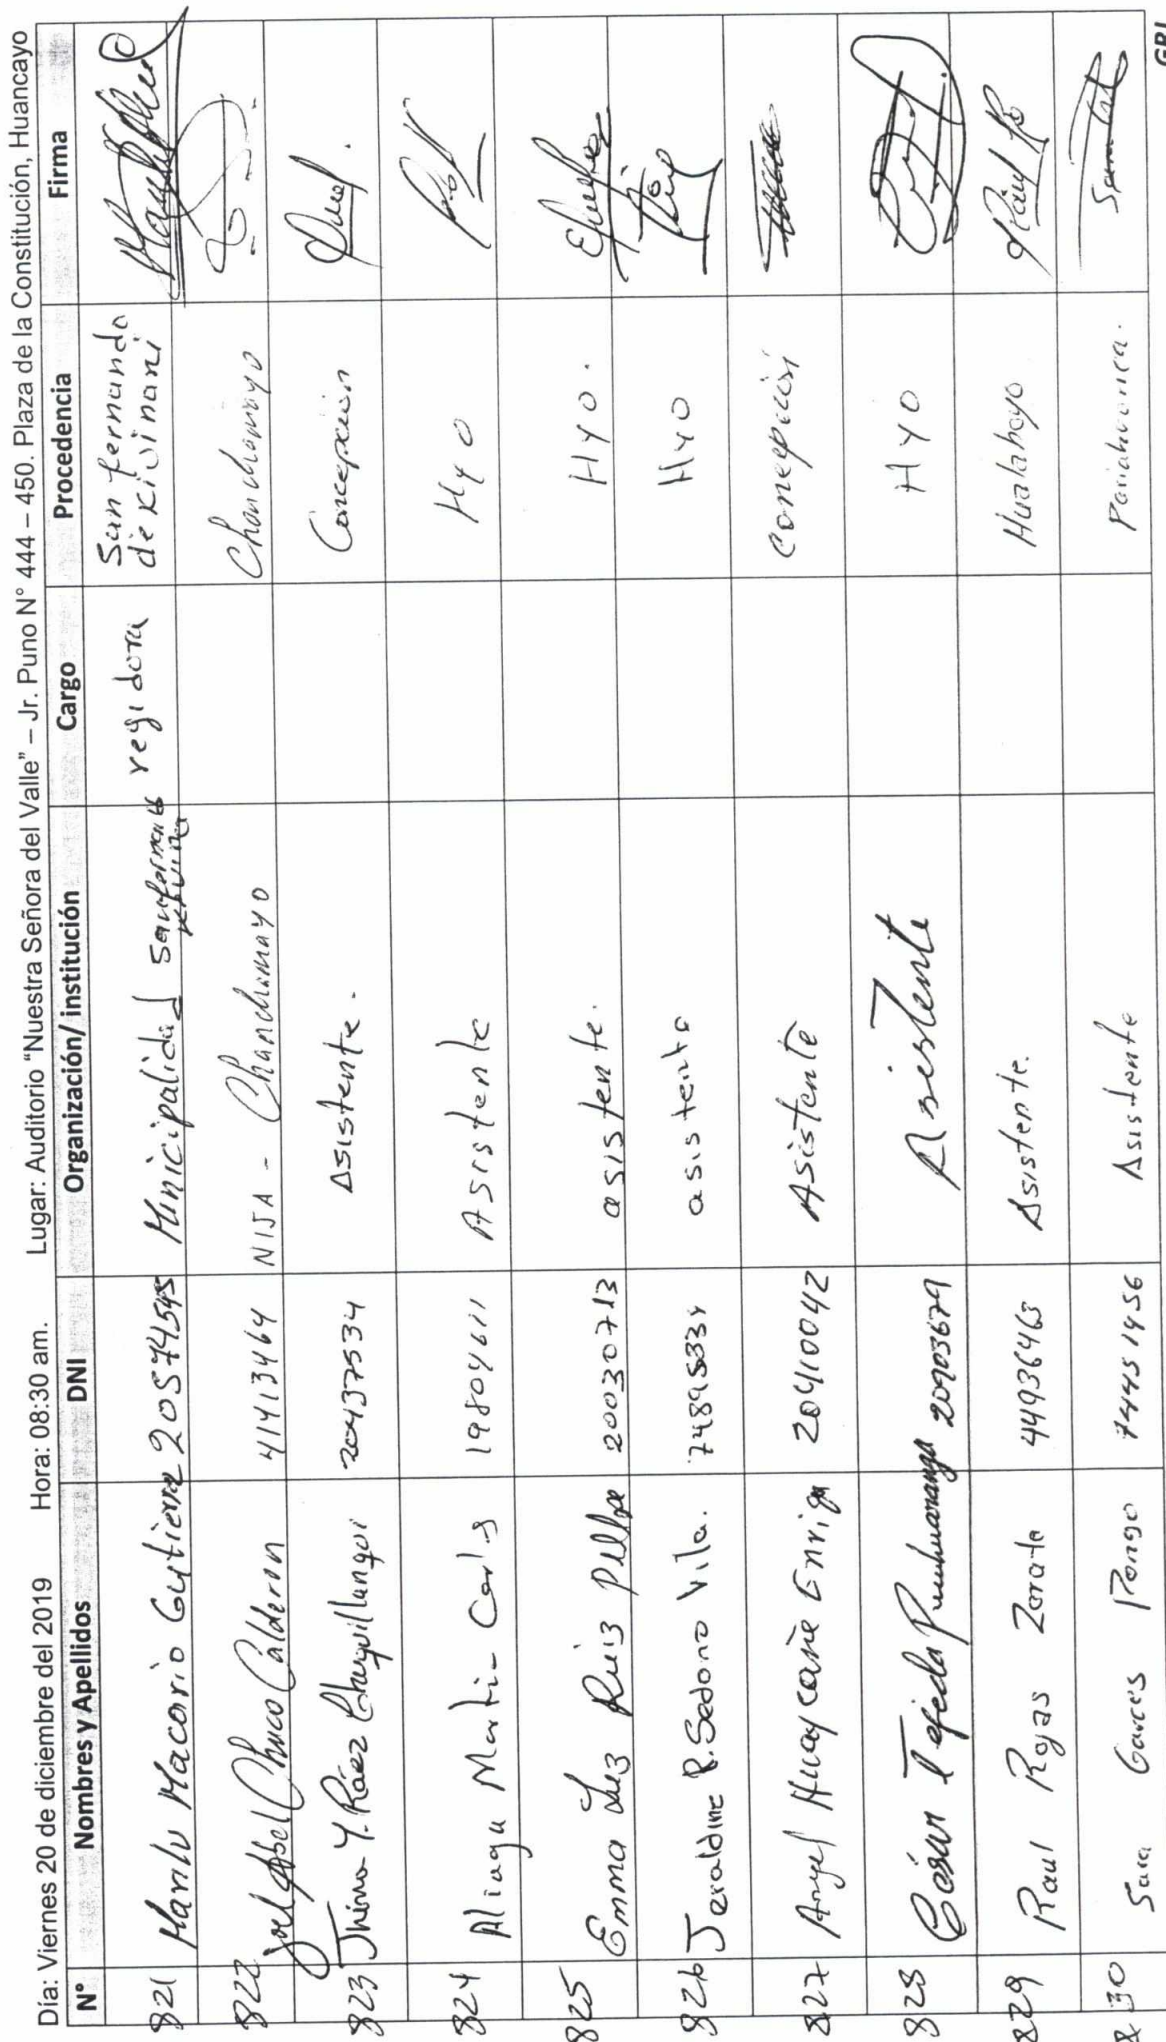 Día: Viernes 20 de diciembre del 2019 Hora: 08:30 am. Lugar: Auditorio "Nuestra Señora del Valle" – Jr. Puno N° 444 – 450. Plaza de la Constitución, Huancayo
N° Nombres y Apellidos DNI Organización/ institución Cargo Procedencia Firma
821 Marilu Macario Gutierrez 20574545 Minicipalidad regidora San fernando
de Kivinani
822 Joel Abel Chuco Calderon 41413464 NIJA - Chanchamayo Chanchamayo
823 Jhina Y. Ráez Chuquillanqui 20437534 Asistente. Concepción
824 Aliaga Martin Carlos 19804611 Asistente Hyo
825 Emma Luz Ruiz 20030713 asistente. Hyo.
826 Jeraldine R. Sedano Vila. asistente Hyo
827 Angel Huaycañe Enriqu 20410042 Asistente Concepción
828 César Tejeda 20903679 Asistente Hyo
829 Raul Rojas Zarate 44936463 Asistente. Hualahoyo
830 Sara Garces Pongo 74451456 Asistente Pariahuanca.
GRJ